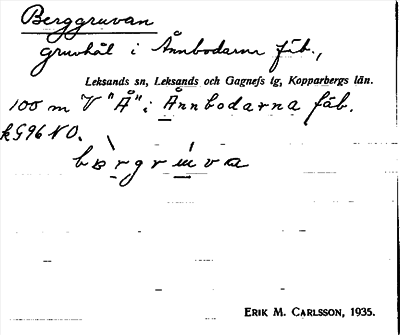 Berggruvan
gruvhål i Ånnbodarna fäb.,
Leksands sn, Leksands och Gagnefs tg, Kopparbergs län.
100 m V "Å" i Ånnbodarna fäb.
kG96NO.
ERIK M. CARLSSON, 1935.